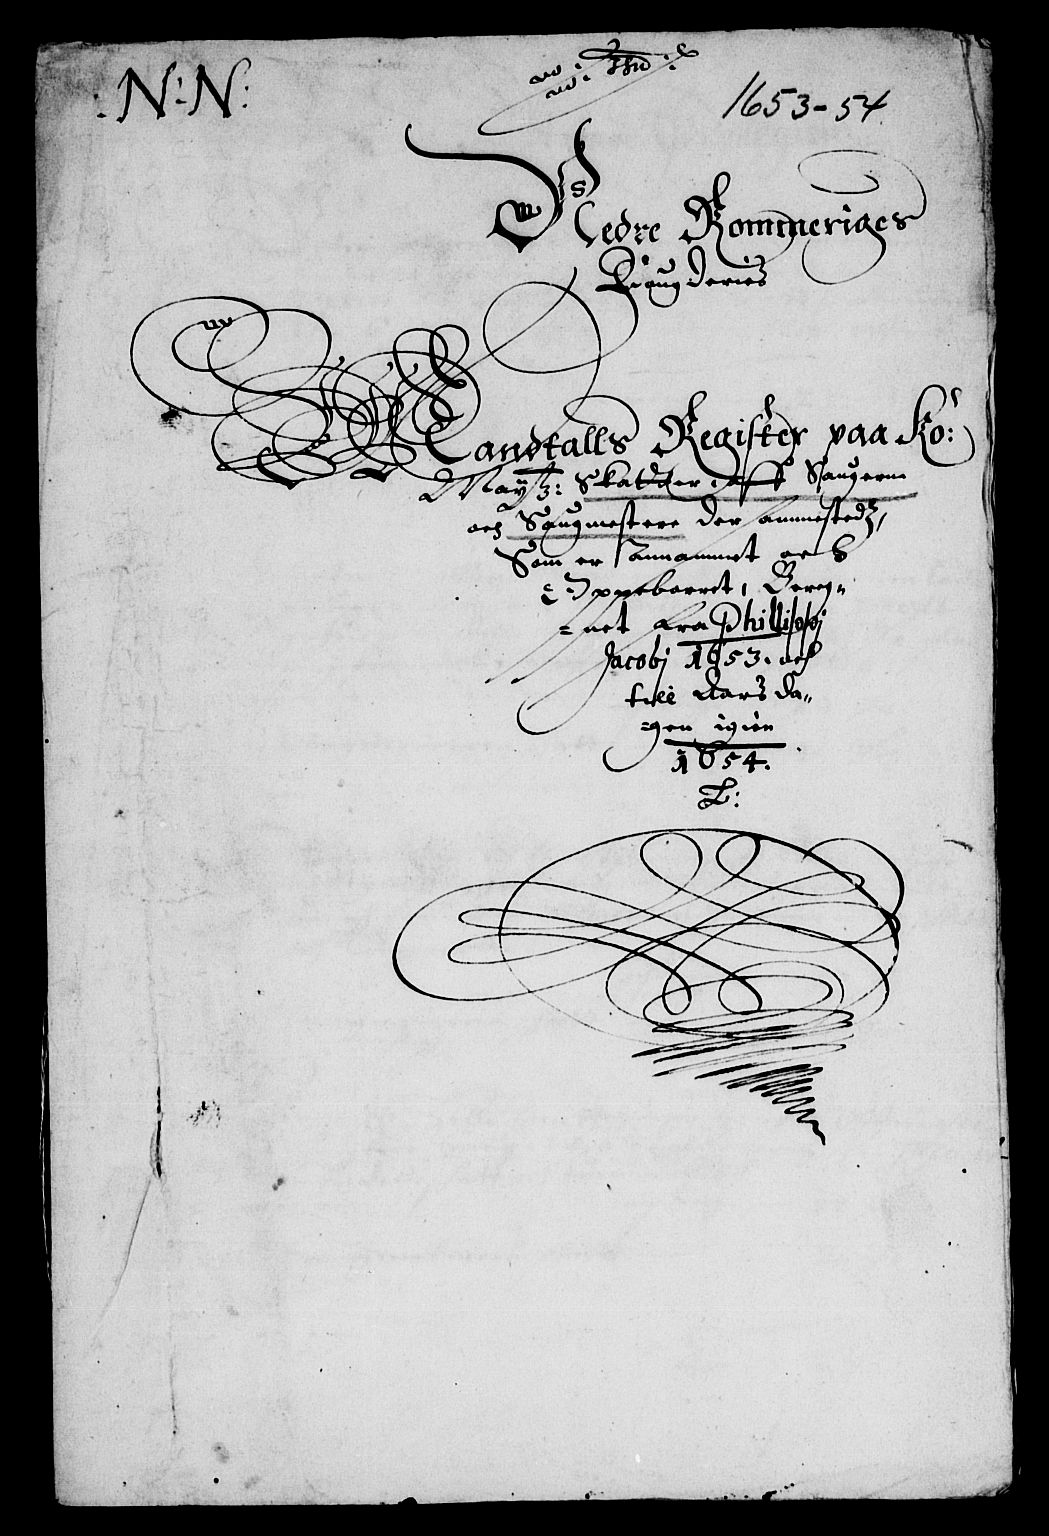 N: N:
1653-54
Nedre Rommeriges
Fougderies
Mandtalls Register paa Ko:
Maÿtz: Skatter aff Saugerne
och Saugmestere der sammestedz,
Som er Annammet och
Oppebaarret, Bereg„
=net fra Phillippi
Jacobj 1653. och
till Aars da„
=gen igien
1654.